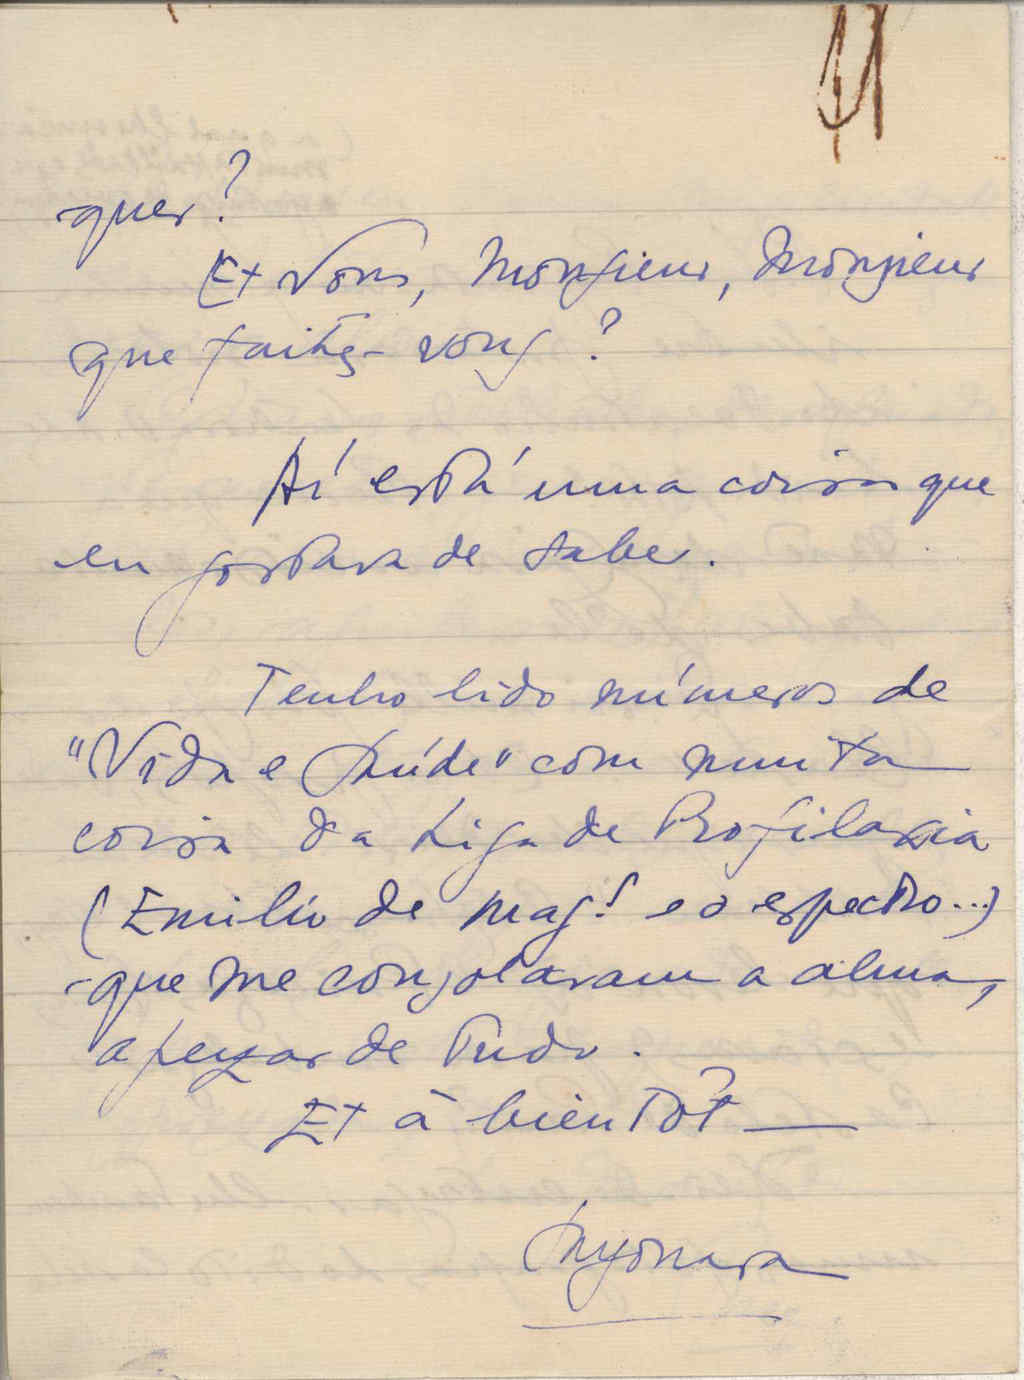 quer?
Et vous, Monsieur, Monsieur
que faites-vous?
Aí está uma coisa que
eu gostava de saber.
Tenho lido números de
"Vida e Saúde" com muita
coisa da Liga de Profilaxia
(Emílio de Mag! e o espectro...)
que me consolaram a alma,
apezar de tudo.
Et à bientôt —
Sayonara